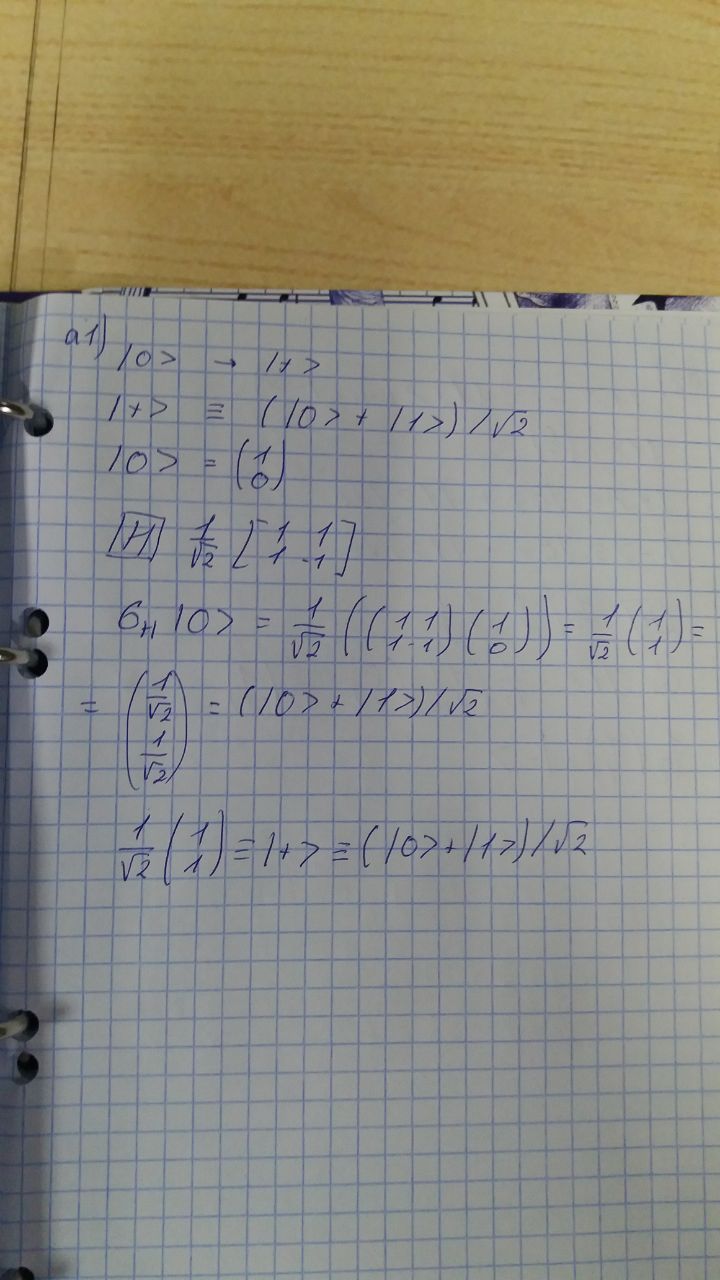 a1)
|0> → |+>
|+> ≡ (|0> + |1>)/√2
|0> = (1 0)
|H| 1/√2 [1 1 1 -1]
б_H |0> = 1/√2 ((1 1 1 -1)(1 0)) = 1/√2 (1 1) =
= (1/√2 1/√2) = (|0> + |1>)/√2
1/√2 (1 1) ≡ |+> ≡ (|0> + |1>)/√2